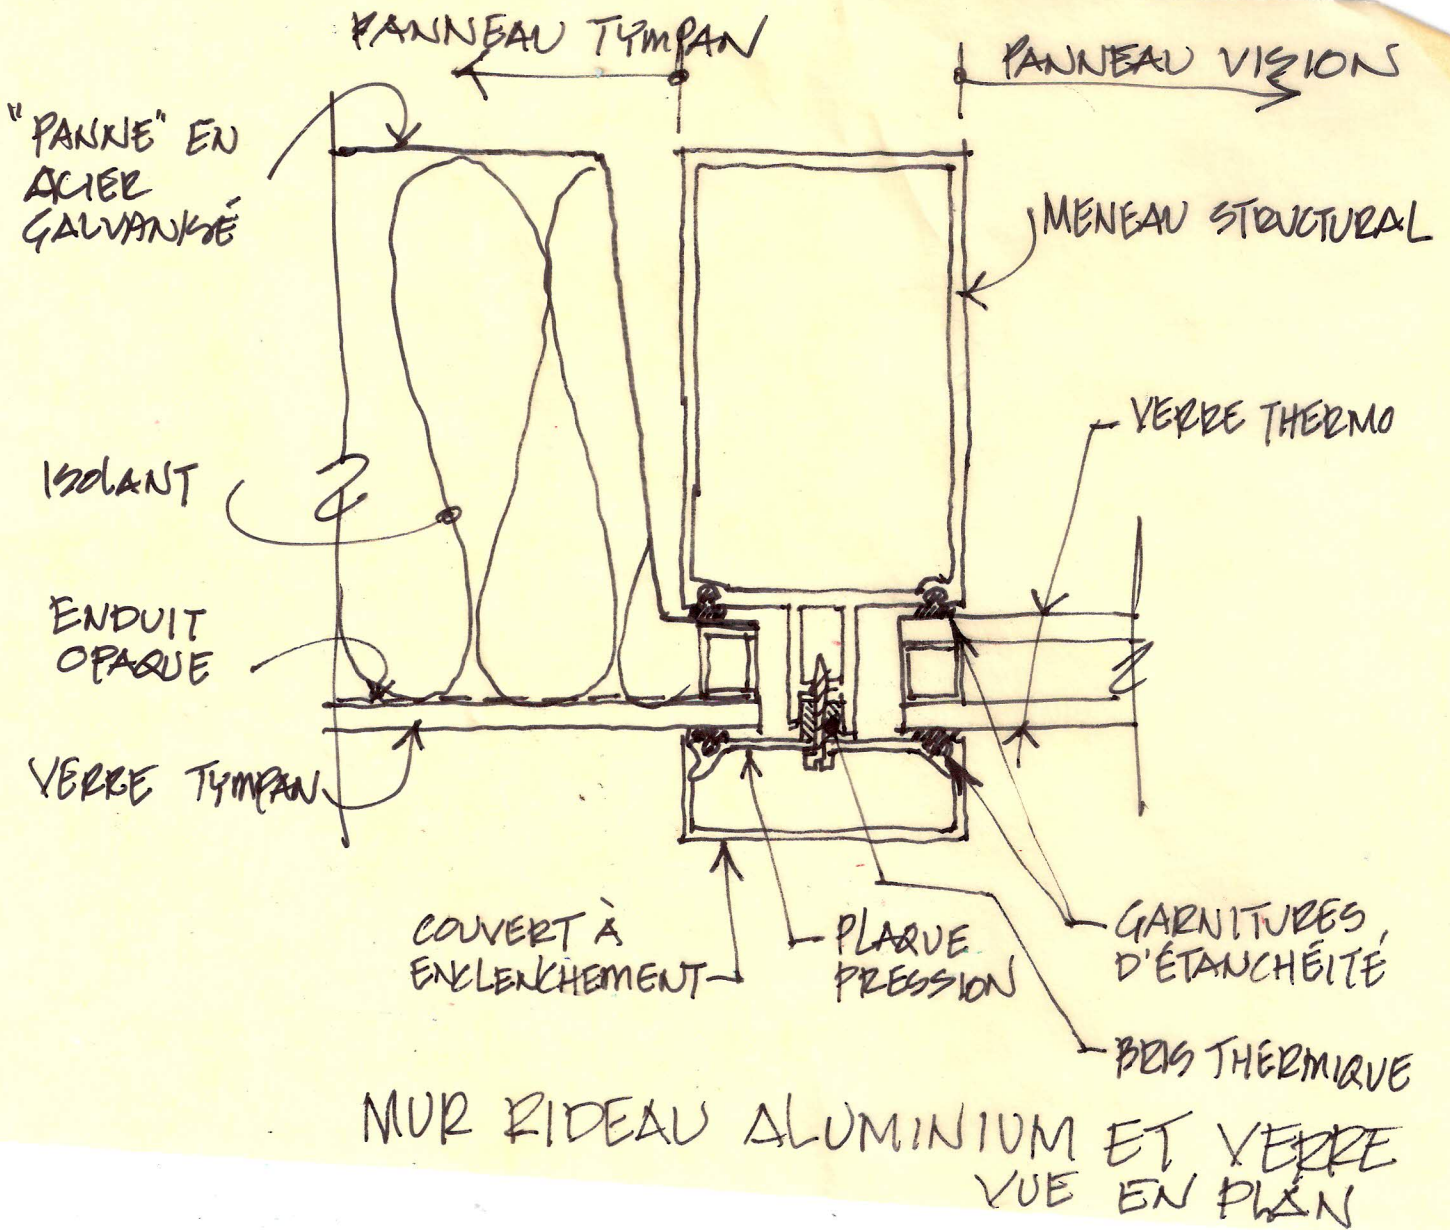 PANNEAU TYMPAN
PANNEAU VISION
"PANNE" EN
ACIER
GALVANISÉ
MENEAU STRUCTURAL
VERRE THERMO
ISOLANT
ENDUIT
OPAQUE
VERRE TYMPAN
COUVERT À
ENCLENCHEMENT
PLAQUE
PRESSION
GARNITURES
D'ÉTANCHÉITÉ
BRIS THERMIQUE
MUR RIDEAU ALUMINIUM ET VERRE
VUE EN PLAN